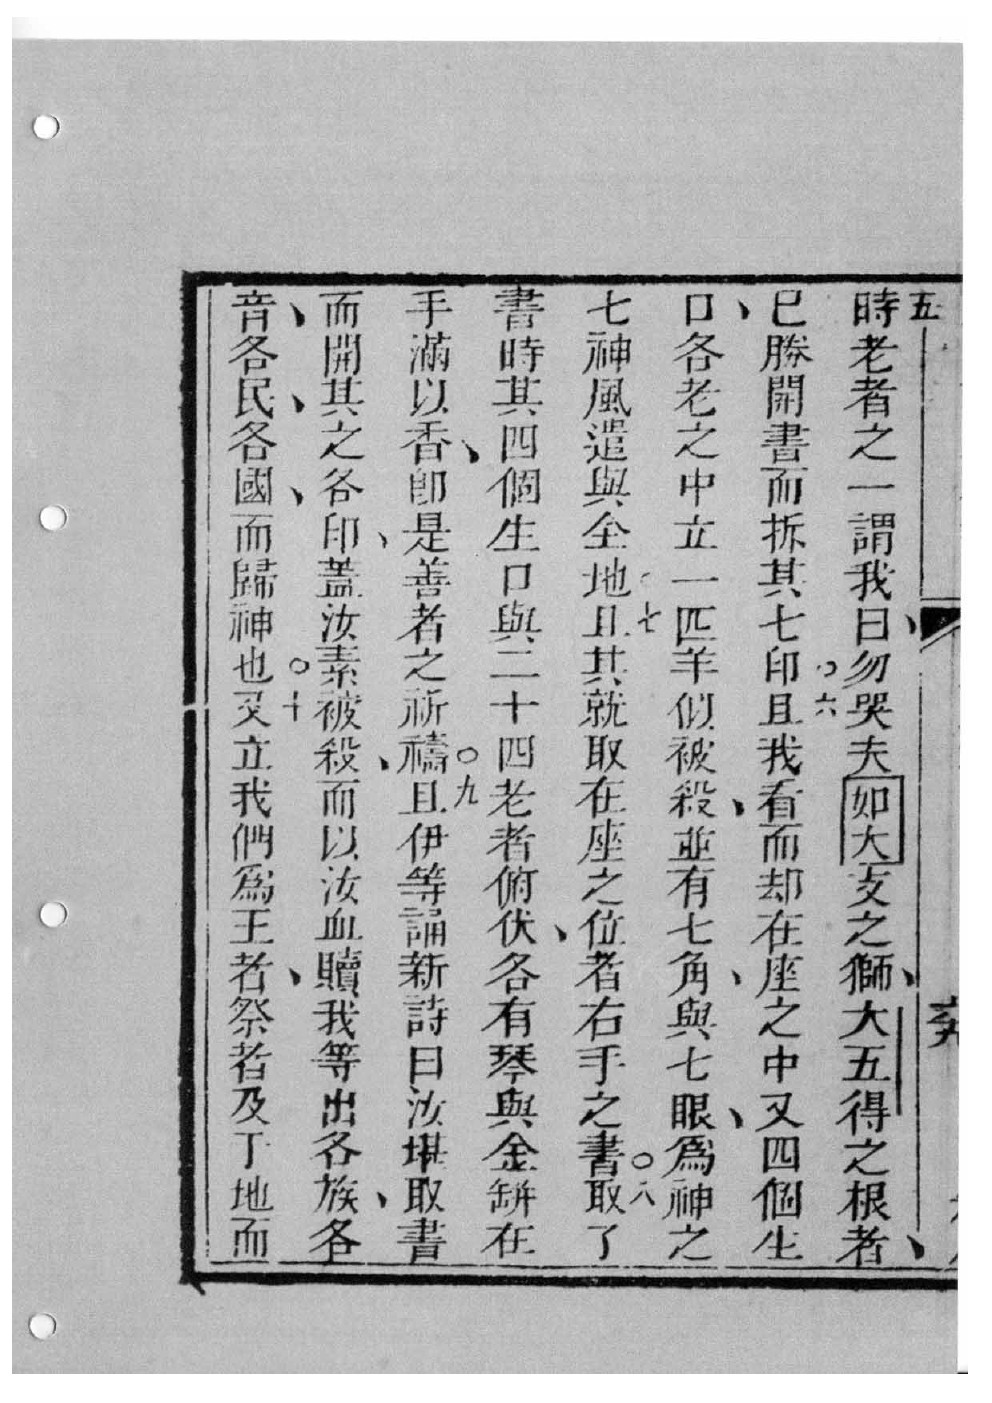 五
時老者之一謂我曰、勿哭夫如大支之獅、大五得之根者、
已勝開書而拆其七印○六且我看而却在座之中又四個生
口、各老之中立一匹羊似被殺、並有七角、與七眼、為神之
七神風遣與全地○七且其就取在座之位者右手之書○八取了
書時其四個生口與二十四老者俯伏、各有琴與金缾在
手滿以香、卽是善者之祈禱○九且伊等誦新詩曰汝堪取書
而開其之各印、蓋汝素被殺、而以汝血贖我等出各族、各
音、各民、各國、而歸神也○十又立我們為王者、祭者及于地而